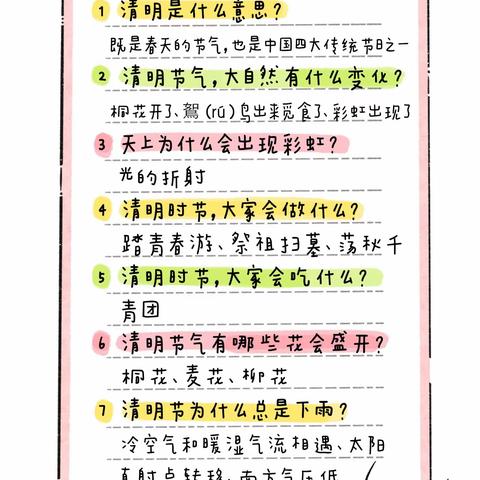 1 清明是什么意思?
既是春天的节气,也是中国四大传统节日之一
2 清明节气,大自然有什么变化?
桐花开了、鴽(rú)鸟出来觅食了、彩虹出现了
3 天上为什么会出现彩虹?
光的折射
4 清明时节,大家会做什么?
踏青春游、祭祖扫墓、荡秋千
5 清明时节,大家会吃什么?
青团
6 清明节气有哪些花会盛开?
桐花、麦花、柳花
7 清明节为什么总是下雨?
冷空气和暖湿气流相遇、太阳
直射点转移、南方气压低